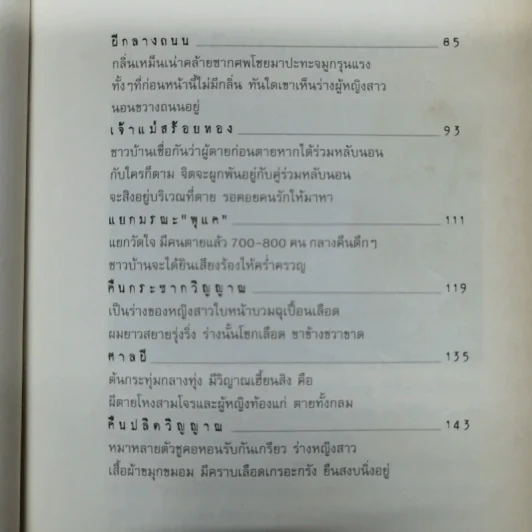 ผีกลางถนน 85
กลิ่นเหม็นเน่าคล้ายซากศพโชยมาปะทะจมูกรุนแรง
ทั้งๆที่ก่อนหน้านี้ไม่มีกลิ่น ทันใดเขาเห็นร่างผู้หญิงสาว
นอนขวางถนนอยู่
เจ้าแม่สร้อยทอง 93
ชาวบ้านเชื่อกันว่าผู้ตายก่อนตายหากได้ร่วมหลับนอน
กับใครก็ตาม จิตจะผูกพันอยู่กับคู่ร่วมหลับนอน
จะสิงอยู่บริเวณที่ตาย รอคอยคนรักให้มาหา
แยกมรณะ"พุแค" 111
แยกวัดใจ มีคนตายแล้ว 700-800 คน กลางคืนดึกๆ
ชาวบ้านจะได้ยินเสียงร้องไห้คร่ำครวญ
คืนกระชากวิญญาณ 119
เป็นร่างของหญิงสาวใบหน้าบวมฉุเปื้อนเลือด
ผมยาวสยายรุ่งริ่ง ร่างนั้นโชกเลือด ขาข้างขวาขาด
ศาลผี 135
ต้นกระทุ่มกลางทุ่ง มีวิญาณเฮี้ยนสิง คือ
ผีตายโหงสามโจรและผู้หญิงท้องแก่ ตายทั้งกลม
คืนปลิดวิญญาณ 143
หมาหลายตัวชูคอหอนรับกันเกรียว ร่างหญิงสาว
เสื้อผ้าขมุกขมอม มีคราบเลือดเกรอะกรัง ยืนสงบนิ่งอยู่